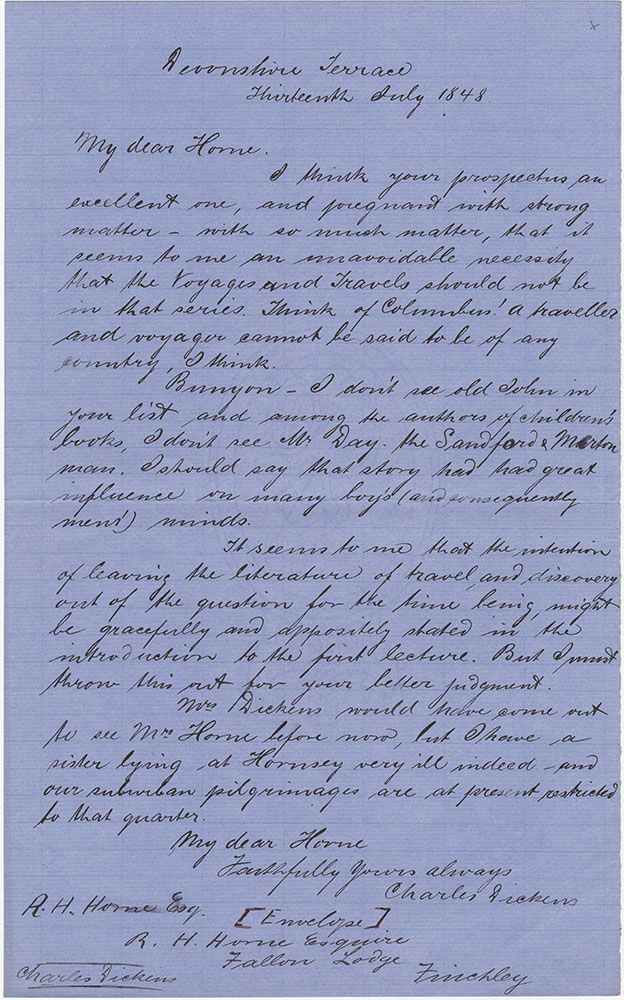 Devonshire Terrace
Thirteenth July 1848
My dear Horne.
I think your prospectus an
excellent one, and pregnant with strong
matter – with so much matter, that it
seems to me an unavoidable necessity
that the Voyages and Travels should not be
in that series. Think of Columbus! A traveller
and voyager cannot be said to be of any
country, I think.
Bunyon – I don't see old John in
your list, and among the authors of children's
books, I don't see Mr Day. the Sandford & Merton
man. I should say that story had had great
influence on many boy's (and consequently
mens') minds.
It seems to me that the intention
of leaving the literature of travel, and discovery
out of the question for the time being, might
be gracefully and appositely stated in the
introduction to the first lecture. But I must
throw this out for your better judgment.
Mrs Dickens would have come out
to see Mrs Horne before now, but I have a
sister lying at Hornsey very ill indeed – and
our suburban pilgrimages are at present restricted
to that quarter.
My dear Horne
Faithfully Yours always
Charles Dickens
R. H. Horne Esq.
[Envelope]
R. H. Horne Esquire
Fallon Lodge
Finchley
Charles Dickens